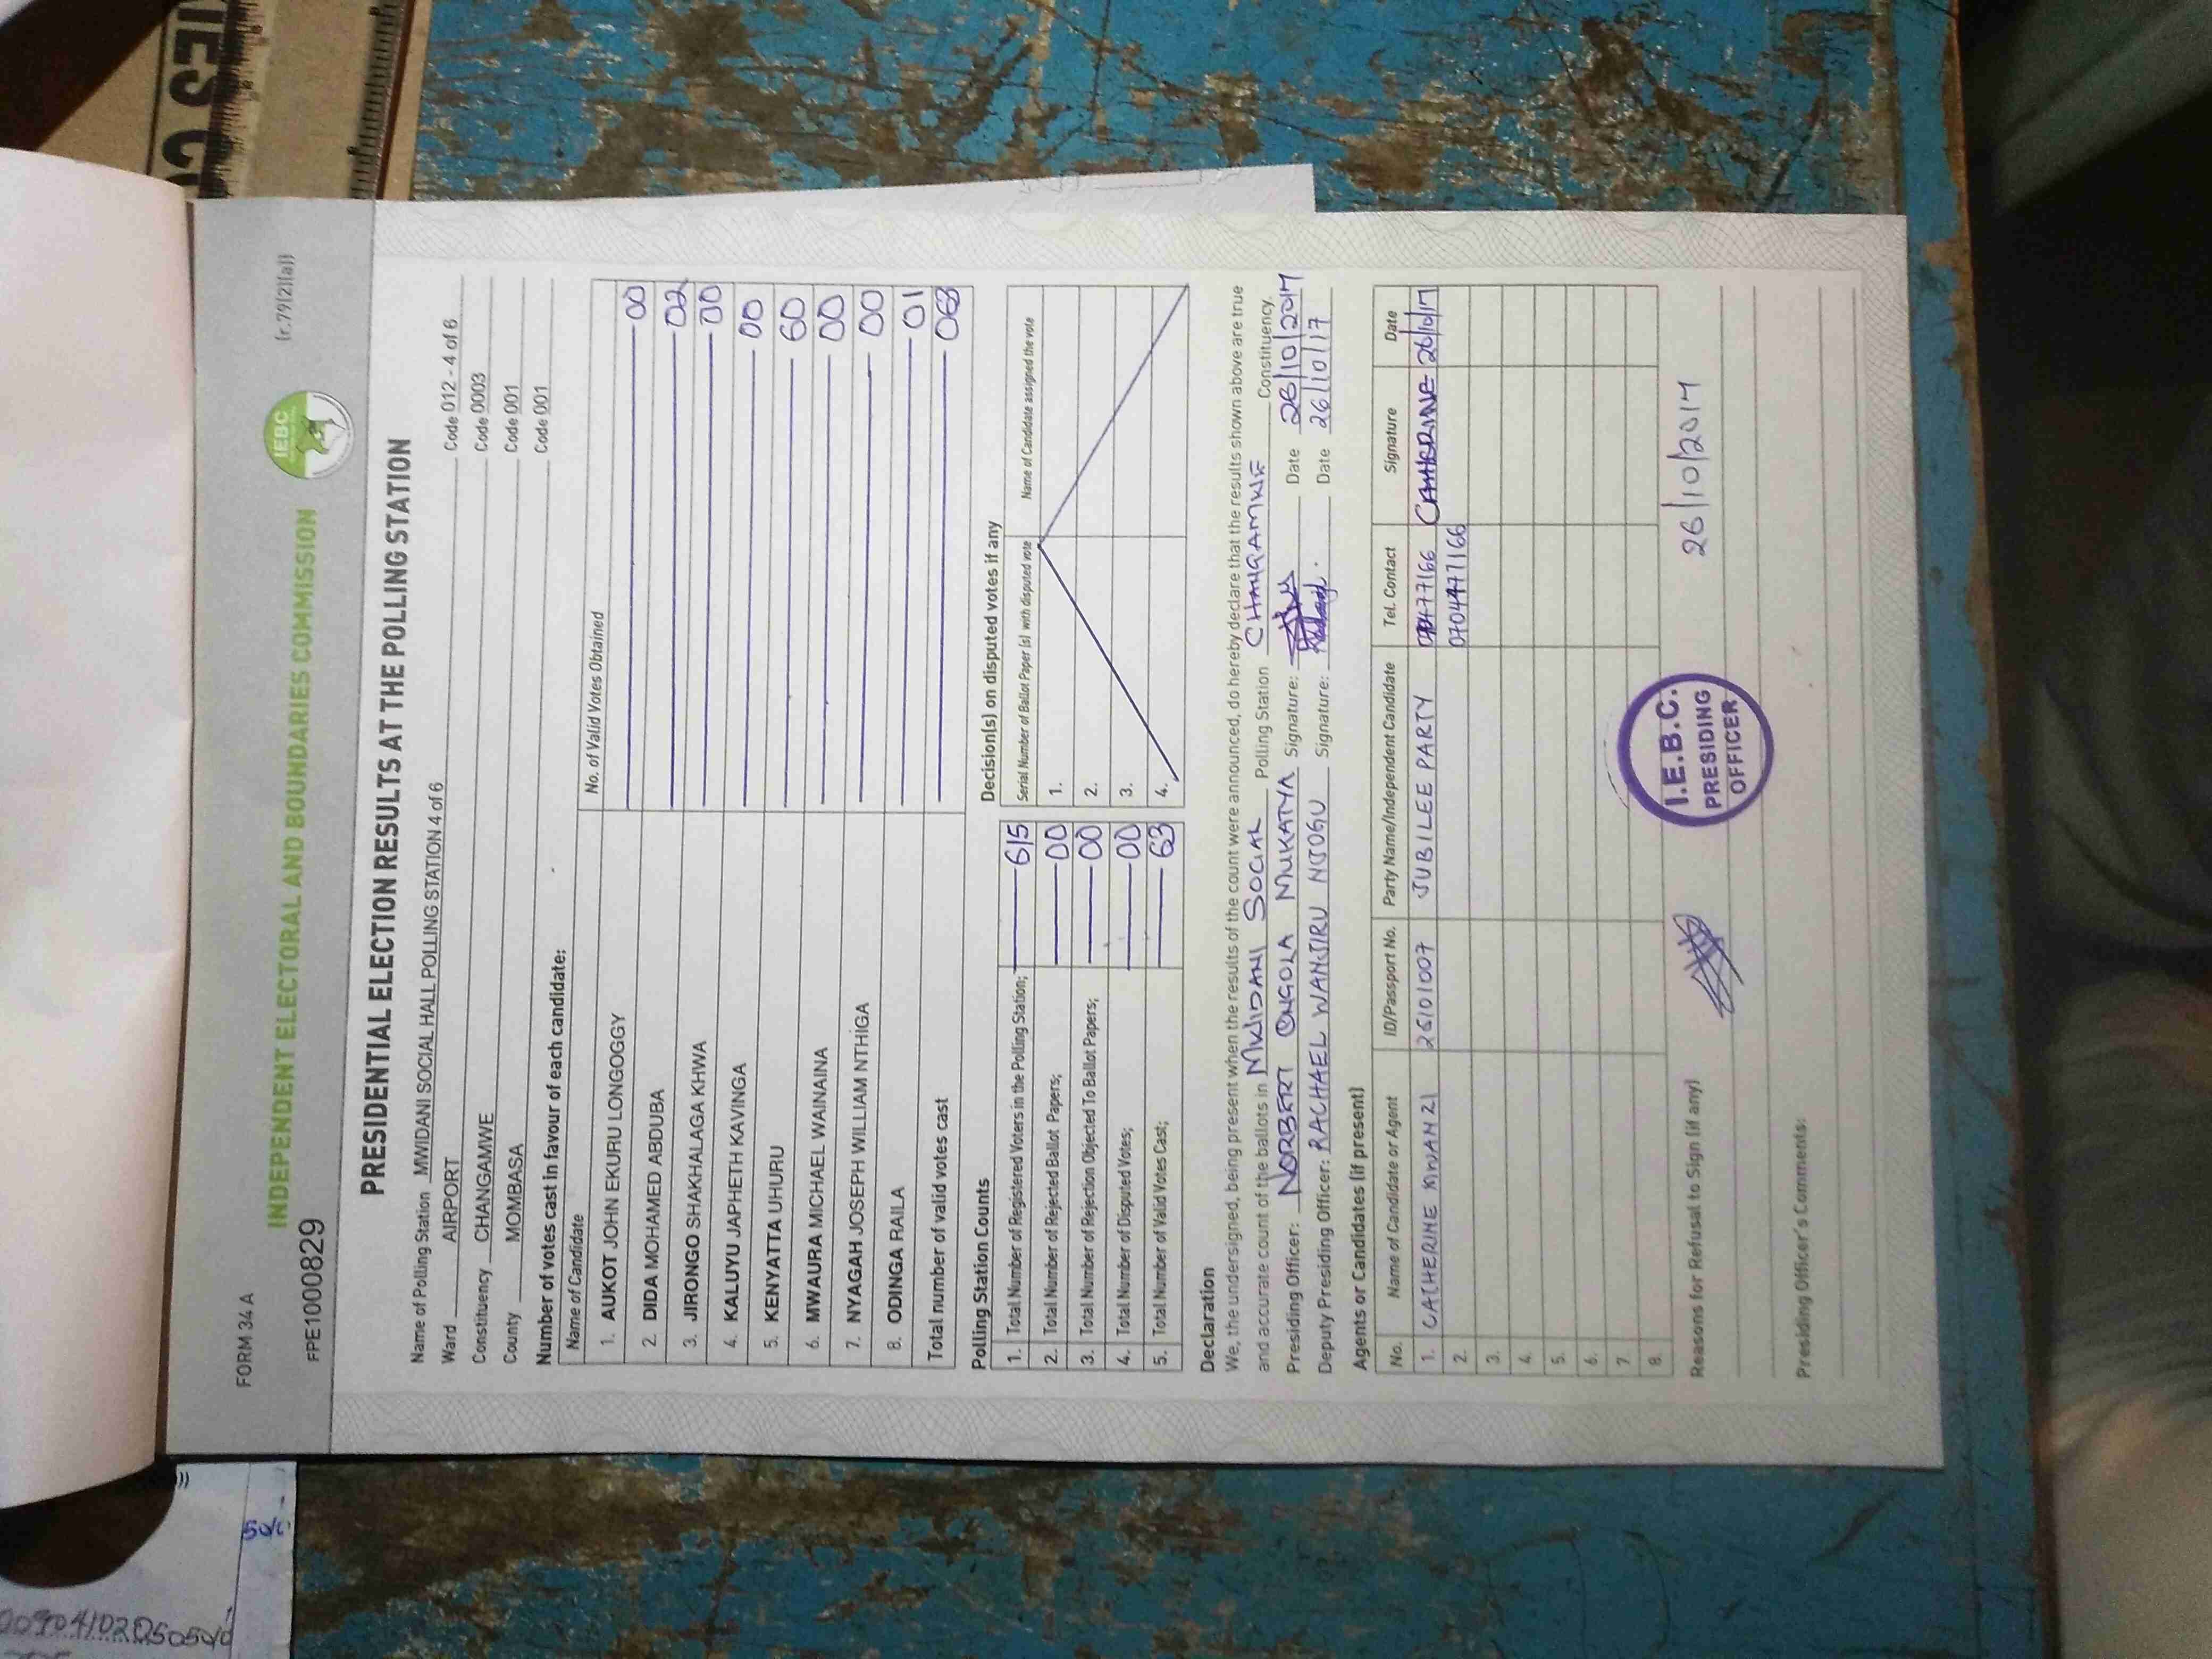 FORM 34 A
(r.79(2)(a))
INDEPENDENT ELECTORAL AND BOUNDARIES COMMISSION
IEBC
FPE1000829
PRESIDENTIAL ELECTION RESULTS AT THE POLLING STATION
Name of Polling Station MWIDANI SOCIAL HALL POLLING STATION 4 of 6
Ward AIRPORT Code 012 - 4 of 6
Constituency CHANGAMWE Code 0003
County MOMBASA Code 001
Code 001
Number of votes cast in favour of each candidate:
Name of Candidate No. of Valid Votes Obtained
1. AUKOT JOHN EKURU LONGOGGY 00
2. DIDA MOHAMED ABDUBA 02
3. JIRONGO SHAKHALAGA KHWA 00
4. KALUYU JAPHETH KAVINGA 00
5. KENYATTA UHURU 60
6. MWAURA MICHAEL WAINAINA 00
7. NYAGAH JOSEPH WILLIAM NTHIGA 00
8. ODINGA RAILA 01
Total number of valid votes cast 063
Polling Station Counts
1. Total Number of Registered Voters in the Polling Station; 615
2. Total Number of Rejected Ballot Papers; 00
3. Total Number of Rejection Objected To Ballot Papers; 00
4. Total Number of Disputed Votes; 00
5. Total Number of Valid Votes Cast; 63
Decision(s) on disputed votes if any
Serial Number of Ballot Paper (s) with disputed vote Name of Candidate assigned the vote
1.
2.
3.
4.
Declaration
We, the undersigned, being present when the results of the count were announced, do hereby declare that the results shown above are true
and accurate count of the ballots in MWIDANI SOCIAL Polling Station CHANGAMWE Constituency.
Presiding Officer: NORBERT ONGOLA MUKATYA Signature: Date 26/10/2017
Deputy Presiding Officer: RACHAEL WANJIRU NJOGU Signature: Date 26/10/17
Agents or Candidates (if present)
No. Name of Candidate or Agent ID/Passport No. Party Name/Independent Candidate Tel. Contact Signature Date
1. CATHERINE 26101007 JUBILEE PARTY CATHERINE 26/10/17
2. 0704477166
3.
4.
5.
6.
7.
8.
Reasons for Refusal to Sign (if any)
26/10/2017
I.E.B.C.
PRESIDING
OFFICER
Presiding Officer's Comments: